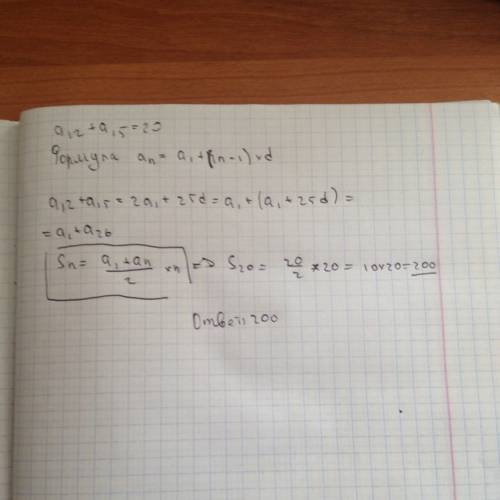 a₁₂ + a₁₅ = 20
Формула aₙ = a₁ + (n-1) × d
a₁₂ + a₁₅ = 2a₁ + 25d = a₁ + (a₁ + 25d) =
= a₁ + a₂₆
Sₙ = (a₁ + aₙ)/2 × n => S₂₀ = 20/2 × 20 = 10 × 20 = 200
Ответ: 200